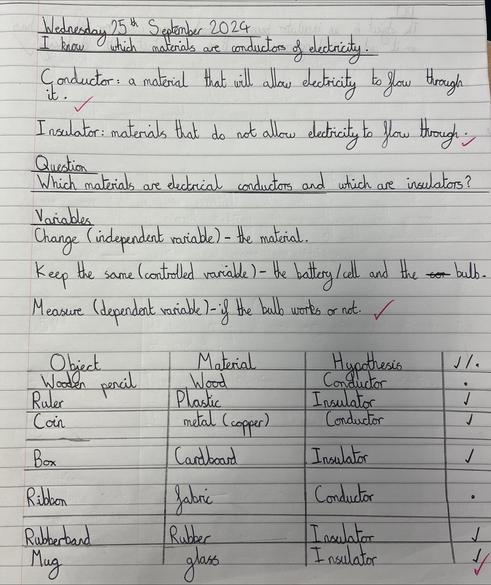 Wednesday 25th September 2024
I know which materials are conductors of electricity.
Conductor: a material that will allow electricity to flow through
it. ✓
Insulator: materials that do not allow electricity to flow through. ✓
Question
Which materials are electrical conductors and which are insulators?
Variables
Change (independent variable) - the material.
Keep the same (controlled variable) - the battery/cell and the bulb.
Measure (dependent variable) - if the bulb works or not. ✓
Object Material Hypothesis ✓/.
Wooden pencil Wood Conductor .
Ruler Plastic Insulator ✓
Coin metal (copper) Conductor ✓
Box Cardboard Insulator ✓
Ribbon fabric Conductor .
Rubberband Rubber Insulator ✓
Mug glass Insulator ✓